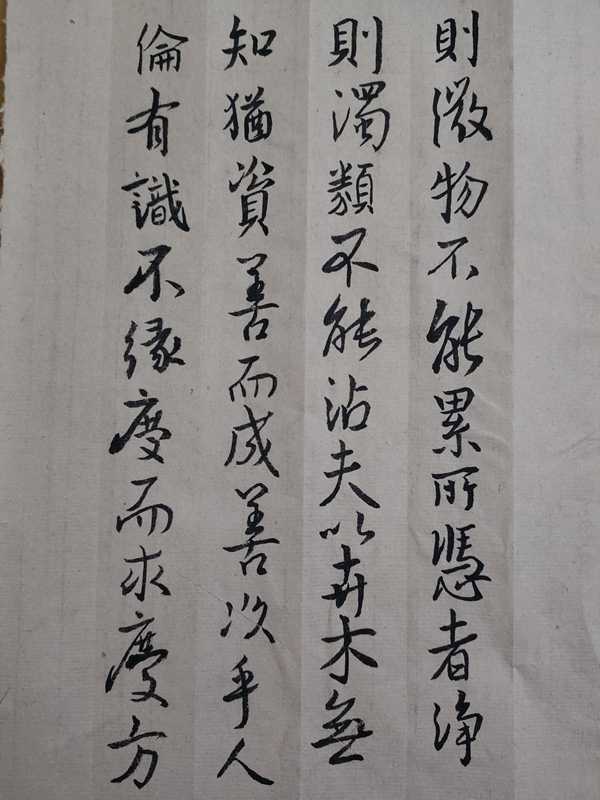 則微物不能累所憑者浄
則濁類不能沾夫以卉木無
知猶資善而成善况乎人
倫有識不緣慶而求慶方